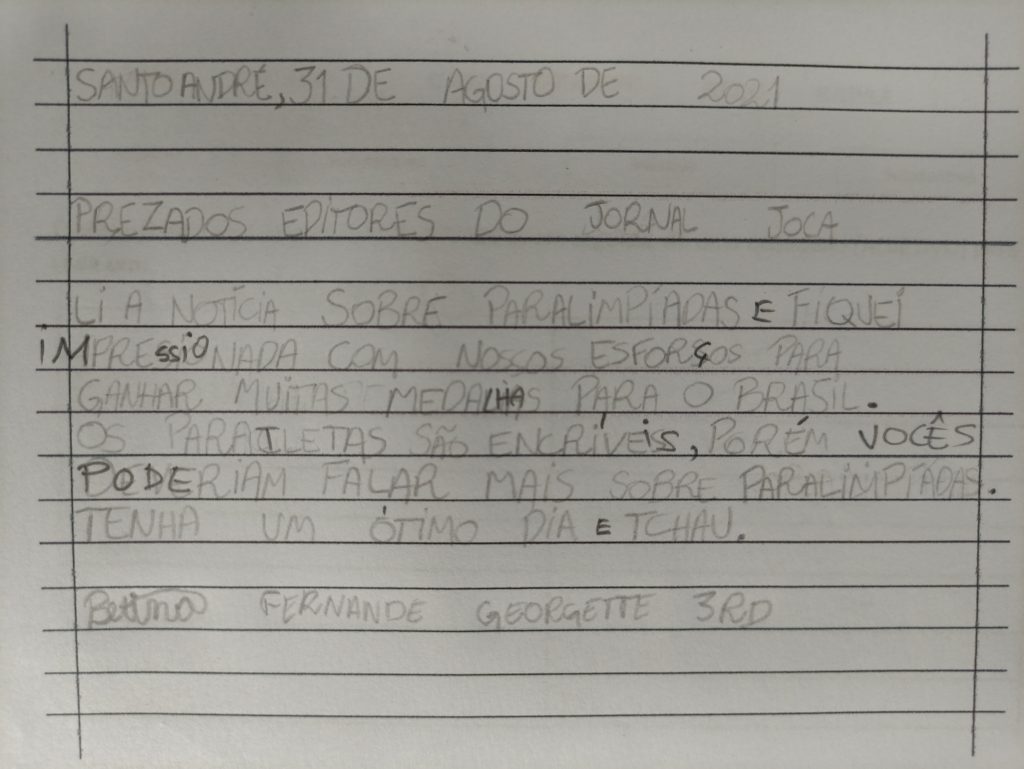 SANTO ANDRÉ, 31 DE AGOSTO DE 2021
PREZADOS EDITORES DO JORNAL JOCA
LI A NOTÍCIA SOBRE PARALIMPÍADAS E FIQUEI
IMPRESSIONADA COM NOSSOS ESFORÇOS PARA
GANHAR MUITAS MEDALHAS PARA O BRASIL.
OS PARATLETAS SÃO ENCRÍVEIS, PORÉM VOCÊS
PODERIAM FALAR MAIS SOBRE PARALIMPÍADAS.
TENHA UM ÓTIMO DIA E TCHAU.
Bettina FERNANDE GEORGETTE 3RD